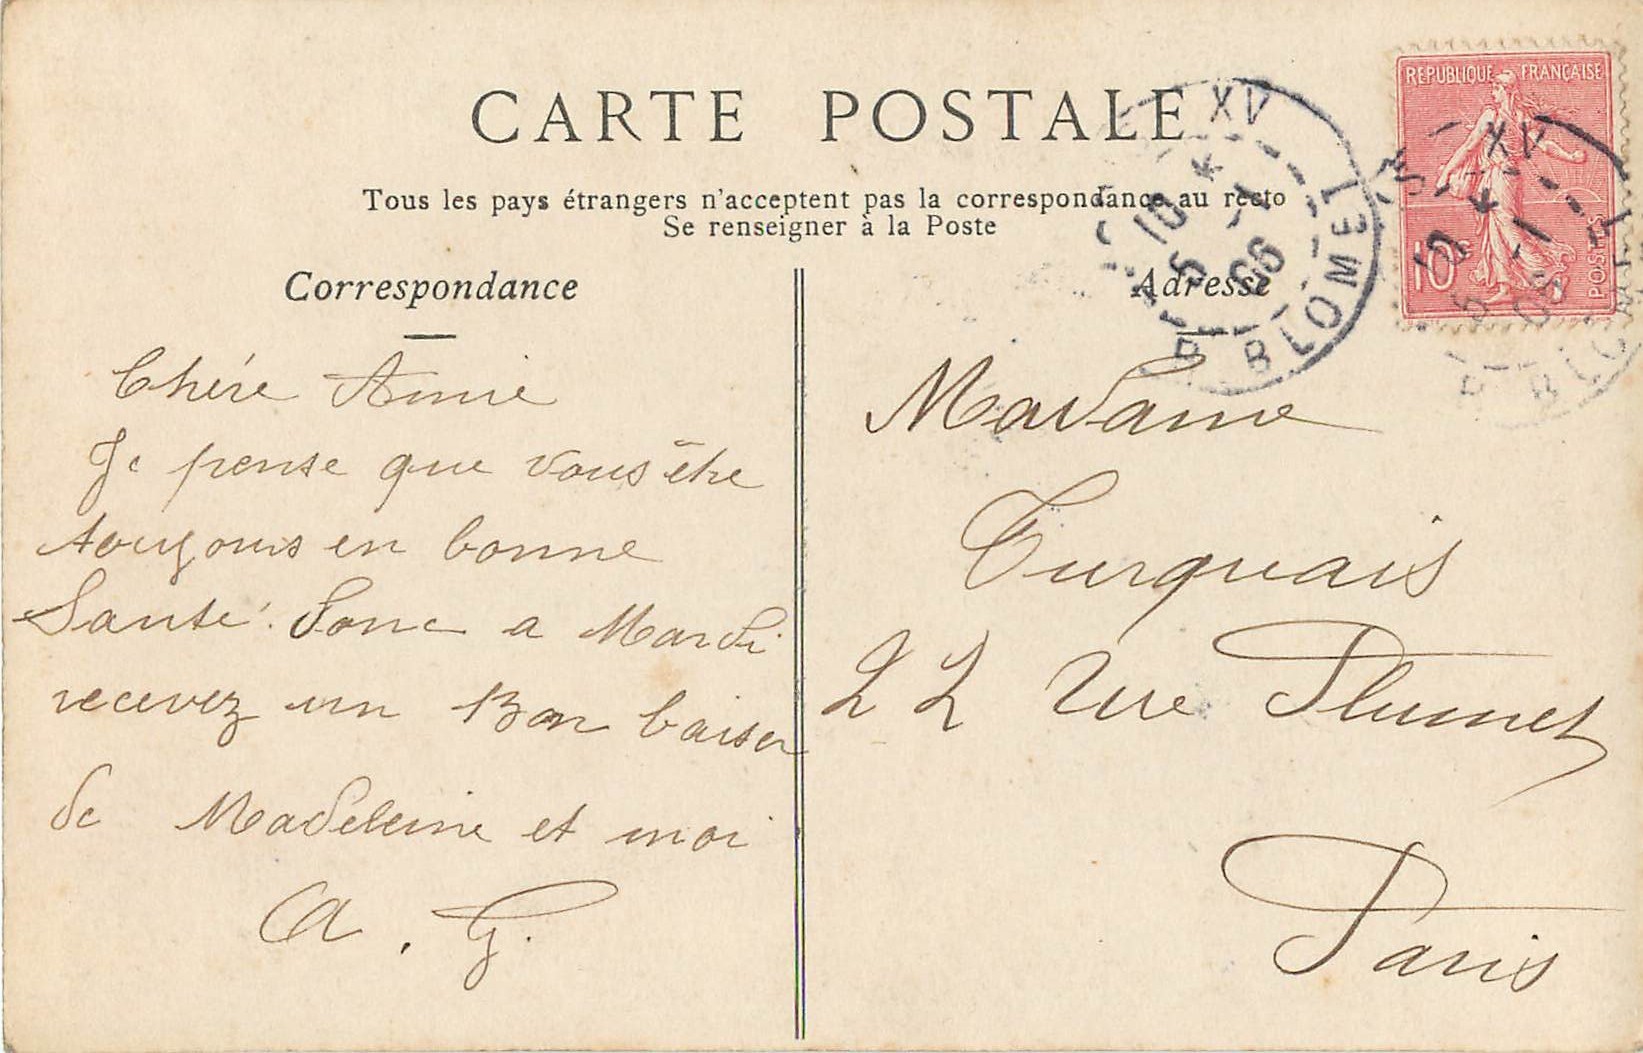 CARTE POSTALE
Tous les pays étrangers n'acceptent pas la correspondance au recto
Se renseigner à la Poste
Correspondance
Chére Amie
Je pense que vous être
toujours en bonne
Santé. Donc a Mardi
recevez un Bon baiser
de Madeleine et moi
A. G.
Adresse
Madame
Turquais
22 Rue Plumet
Paris
REPUBLIQUE FRANÇAISE
10c
POSTES
XV
10 *
5 -1
06
R. BLOMET
XV
10 *
5 -1
06
R. BLOMET